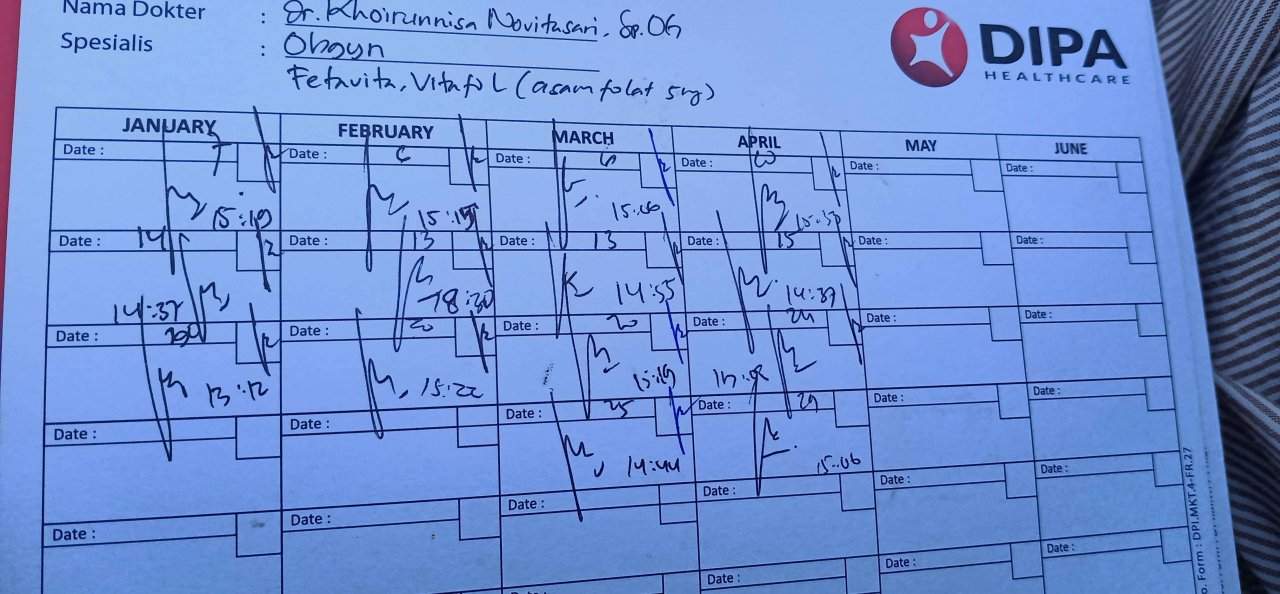 Nama Dokter : Dr. Khoirunnisa Novitasari, Sp.OG
Spesialis : Obgyn
Fetavita, Vitafol (asam folat 5mg)
DIPA
HEALTHCARE
JANUARY FEBRUARY MARCH APRIL MAY JUNE
Date : 7 Date : 6 Date : 6 Date : Date : Date :
15:19 15:15 15:06 15:30
Date : 14 Date : 13 Date : 13 Date : 15 Date : Date :
14:37 18:30 14:55 14:39
Date : Date : 20 Date : 20 Date : 24 Date : Date :
13:12 15:22 15:19
Date : Date : Date : 25 Date : 29 Date : Date :
14:44 15:06
Date : Date : Date : Date : Date : Date :
Date : Date : Date :
o. Form : DPI.MKT.4-FR.27